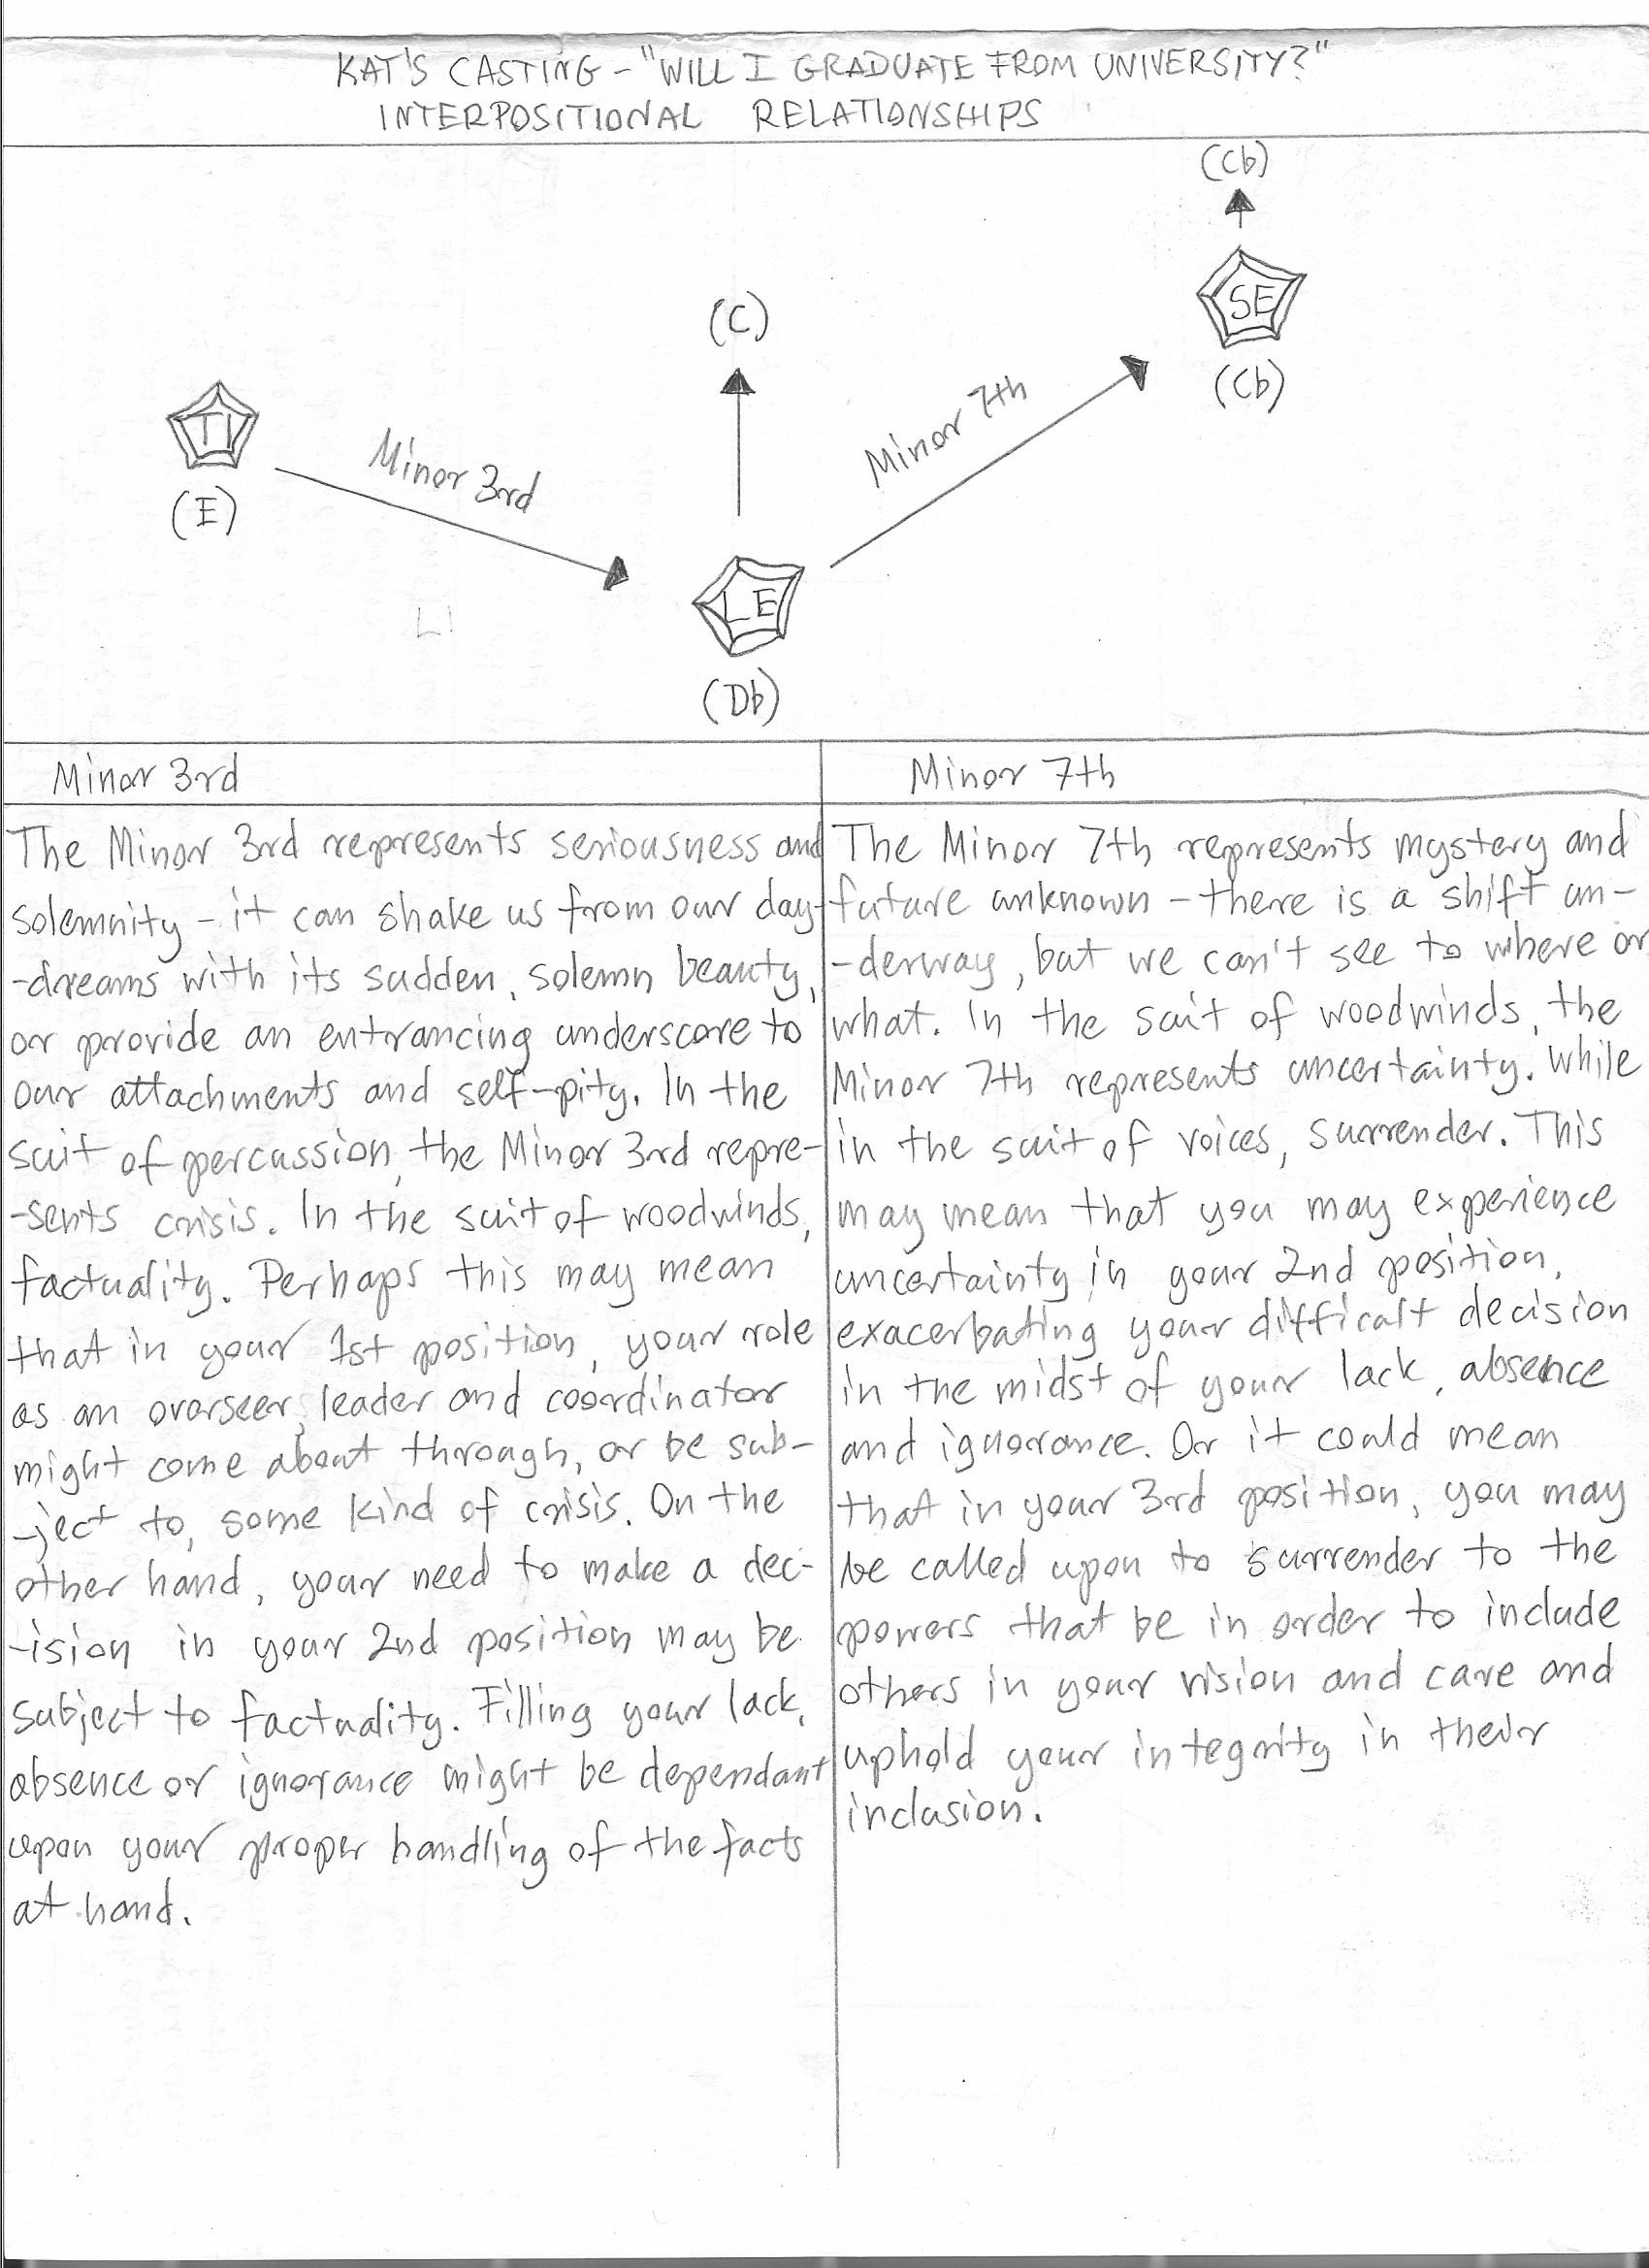 KAT'S CASTING - "WILL I GRADUATE FROM UNIVERSITY?"
INTERPOSITIONAL RELATIONSHIPS
(Cb)
SE
(Cb)
(C)
TI
(E)
Minor 3rd
Minor 7th
LE
(Db)
LI
Minor 3rd
The Minor 3rd represents seriousness and
solemnity - it can shake us from our day-
-dreams with its sudden, solemn beauty,
or provide an entrancing underscore to
our attachments and self-pity. In the
suit of percussion, the Minor 3rd repre-
-sents crisis. In the suit of woodwinds,
factuality. Perhaps this may mean
that in your 1st position, your role
as an overseer, leader and coordinator
might come about through, or be sub-
-ject to, some kind of crisis. On the
other hand, your need to make a dec-
-ision in your 2nd position may be
subject to factuality. Filling your lack,
absence or ignorance might be dependant
upon your proper handling of the facts
at hand.
Minor 7th
The Minor 7th represents mystery and
future unknown - there is a shift un-
-derway, but we can't see to where or
what. In the suit of woodwinds, the
Minor 7th represents uncertainty. While
in the suit of voices, surrender. This
may mean that you may experience
uncertainty in your 2nd position,
exacerbating your difficult decision
in the midst of your lack, absence
and ignorance. Or it could mean
that in your 3rd position, you may
be called upon to surrender to the
powers that be in order to include
others in your vision and care and
uphold your integrity in their
inclusion.